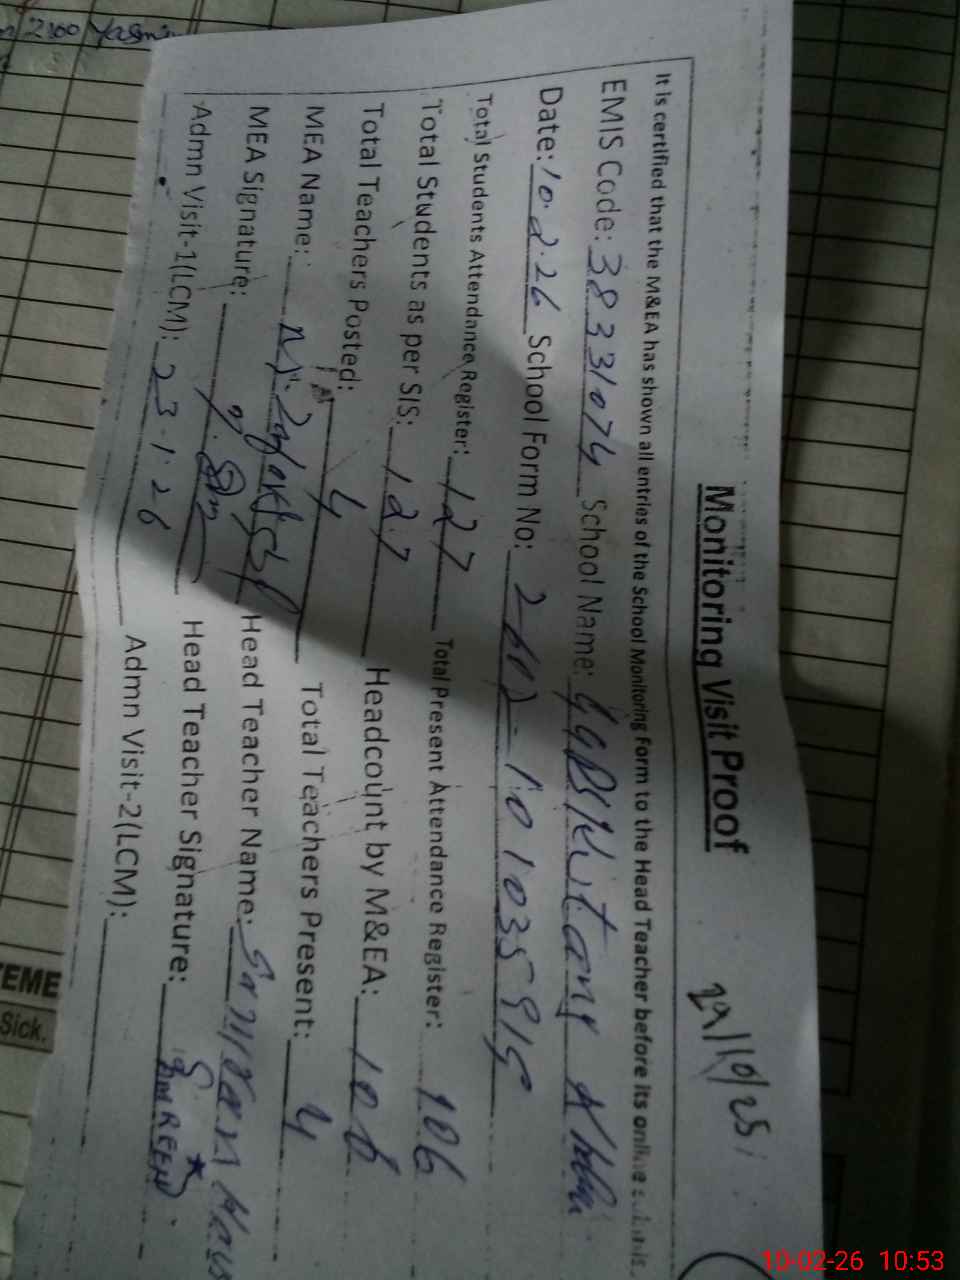 2300 Yasmin
Monitoring Visit Proof
29/10/25
It is certified that the M&EA has shown all entries of the School Monitoring Form to the Head Teacher before its online
EMIS Code: 38331074 School Name:
Date: 10.2.26 School Form No: 2602-101035915
Total Students Attendance Register: 127 Total Present Attendance Register: 106
Total Students as per SIS: 127 Headcount by M&EA: 106
Total Teachers Posted: 4 Total Teachers Present: 4
MEA Name: Head Teacher Name:
MEA Signature: Head Teacher Signature: SAMREEN
Admn Visit-1(LCM): 23.1.26 Admn Visit-2(LCM):
EME
Sick.
10-02-26 10:53